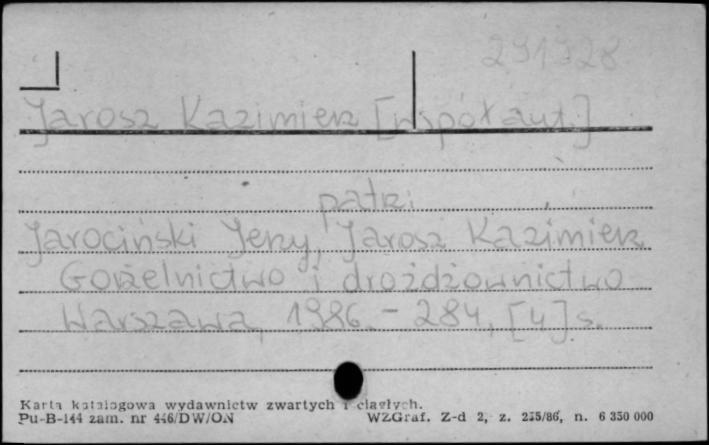 291928
Jarosz Kazimierz [współaut.]
patrz:
Jarociński Jerzy, Jarosz Kazimierz
Gorzelnictwo i drożdżownictwo
Warszawa, 1986. - 284, [4] s.
Karta katalogowa wydawnictw zwartych i ciągłych.
Pu-B-144 zam. nr 446/DW/ON WZGraf. Z-d 2, z. 235/86, n. 6 350 000